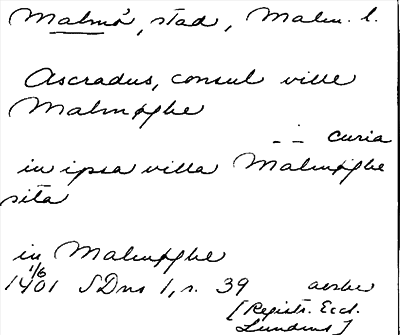 Malmö, stad, Malm. l.
Ascradus, consul ville
Malmøghe
_ .. _ curia
in ipsa villa Malmøghe
sita
in Malmøghe
1/6
1401 SDns 1, s. 39 avskr
[Registr. Eccl.
Lundens]